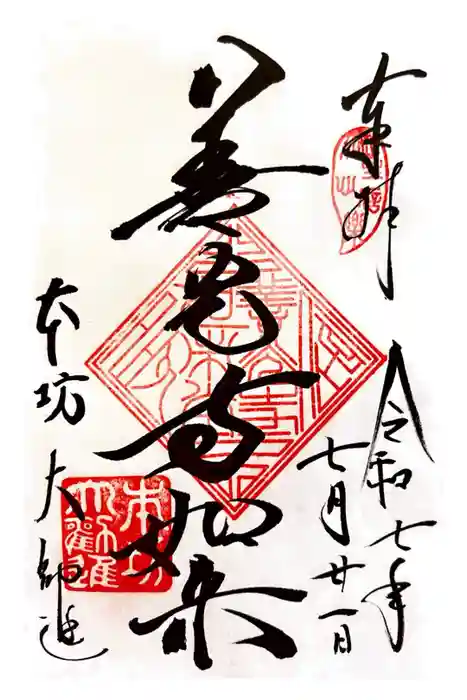 奉拝
令和七年
七月廿一日
善光寺如来
本坊 大勧進
本坊
大勸進